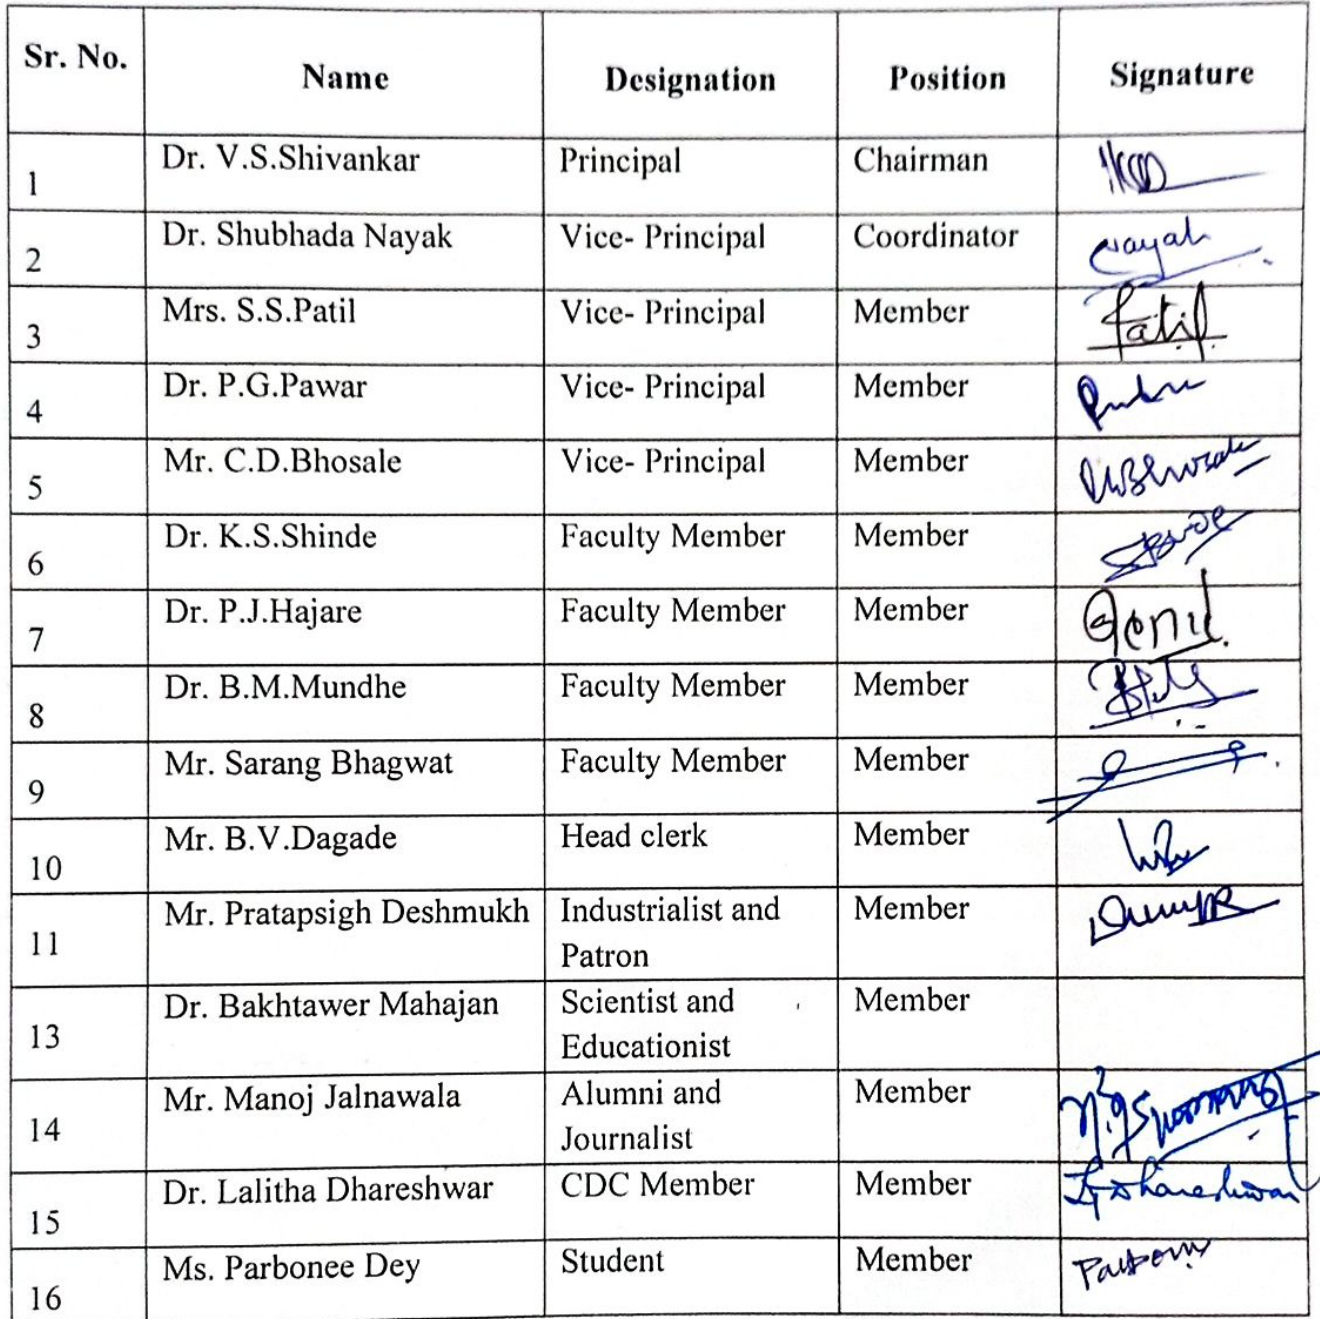 Sr. No. Name Designation Position Signature
1 Dr. V.S.Shivankar Principal Chairman
2 Dr. Shubhada Nayak Vice- Principal Coordinator Nayak
3 Mrs. S.S.Patil Vice- Principal Member Patil
4 Dr. P.G.Pawar Vice- Principal Member
5 Mr. C.D.Bhosale Vice- Principal Member
6 Dr. K.S.Shinde Faculty Member Member
7 Dr. P.J.Hajare Faculty Member Member
8 Dr. B.M.Mundhe Faculty Member Member
9 Mr. Sarang Bhagwat Faculty Member Member
10 Mr. B.V.Dagade Head clerk Member
11 Mr. Pratapsigh Deshmukh Industrialist and Member
Patron
13 Dr. Bakhtawer Mahajan Scientist and Member
Educationist
14 Mr. Manoj Jalnawala Alumni and Member
Journalist
15 Dr. Lalitha Dhareshwar CDC Member Member Dhareshwar
16 Ms. Parbonee Dey Student Member